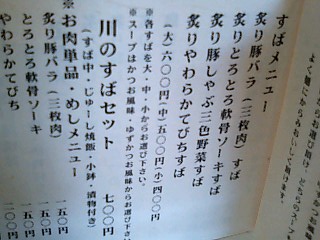 すばメニュー
炙り豚バラ（三枚肉）すば
炙りとろとろ軟骨ソーキすば
炙り豚しゃぶ三色野菜すば
炙りやわらかてびちすば
（大）六〇〇円（中）五〇〇円（小）四〇〇円
※各すばを大・中・小からお選び下さい。
※スープはかつお風味・ゆずかつお風味からお選び下さい
川のすばセット　七〇〇円
（すば中・じゅーし焼飯・小鉢・漬物付き）
※お肉単品・めしメニュー
炙り豚バラ（三枚肉）　一五〇
とろとろ軟骨ソーキ　一五〇
やわらかてびち　二〇〇